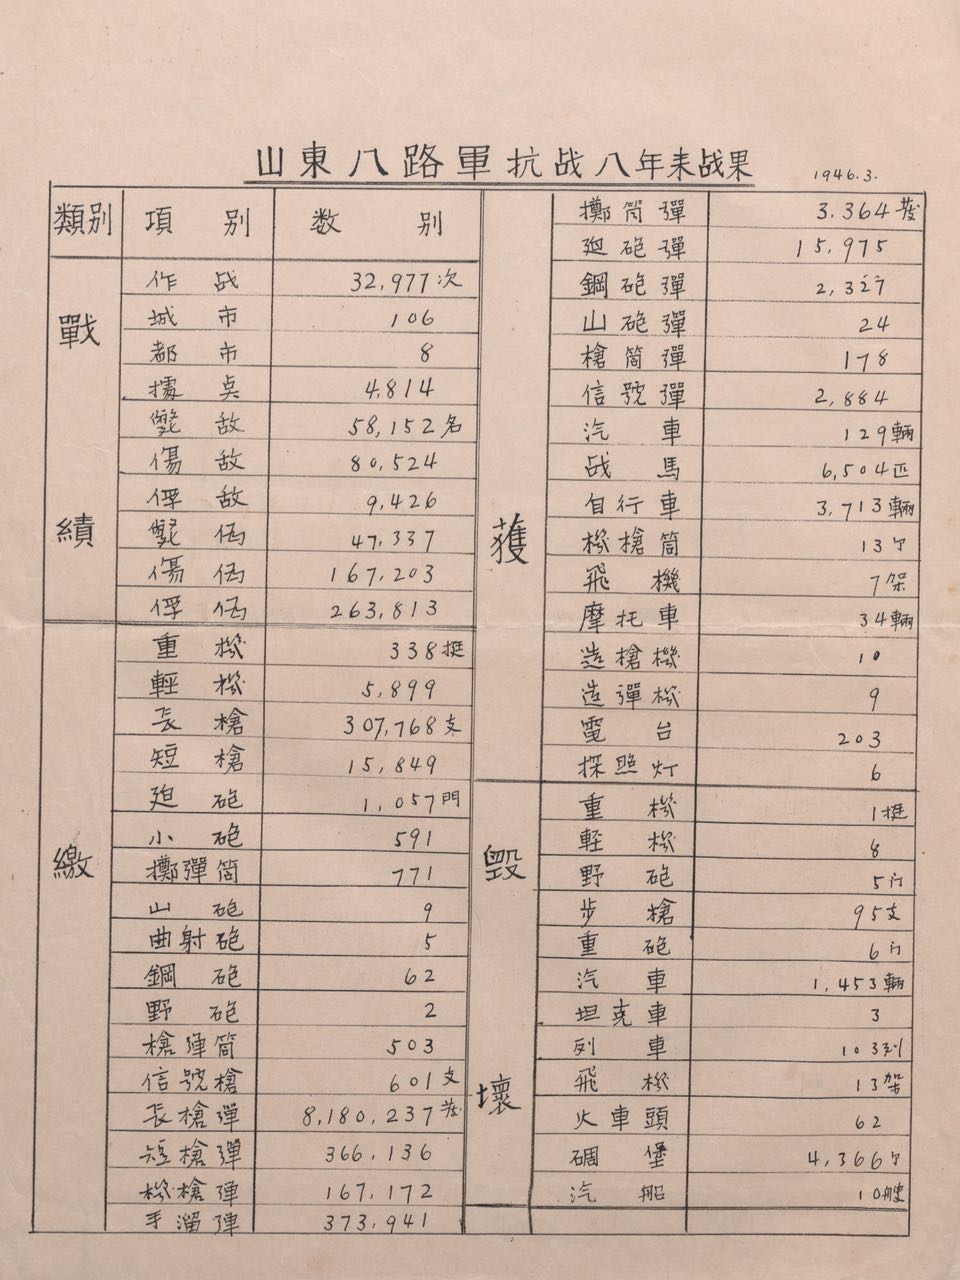 山東八路軍抗战八年来战果 1946.3.
類別 項別 数別
戰績
作战 32,977次
城市 106
都市 8
據点 4,814
斃敌 58,152名
傷敌 80,524
俘敌 9,426
斃伪 47,337
傷伪 167,203
俘伪 263,813
繳
重機 338挺
輕機 5,899
長槍 307,768支
短槍 15,849
迫砲 1,057門
小砲 591
擲彈筒 771
山砲 9
曲射砲 5
鋼砲 62
野砲 2
槍彈筒 503
信號槍 601支
長槍彈 8,180,237发
短槍彈 366,136
機槍彈 167,172
手溜弹 373,941
獲
擲筒彈 3,364发
迫砲彈 15,975
鋼砲彈
山砲彈 24
槍筒彈 178
信號彈 2,884
汽車 129輛
战馬 6,504匹
自行車 3,713輛
機槍筒 13个
飛機 7架
摩托車 34輛
造槍機 10
造彈機 9
電台 203
探照灯 6
毀壞
重機 1挺
軽機 8
野砲 5门
步槍 95支
重砲 6门
汽車 1,453輛
坦克車 3
列車 103列
飛機 13架
火車頭 62
碉堡 4,366个
汽船 10艘